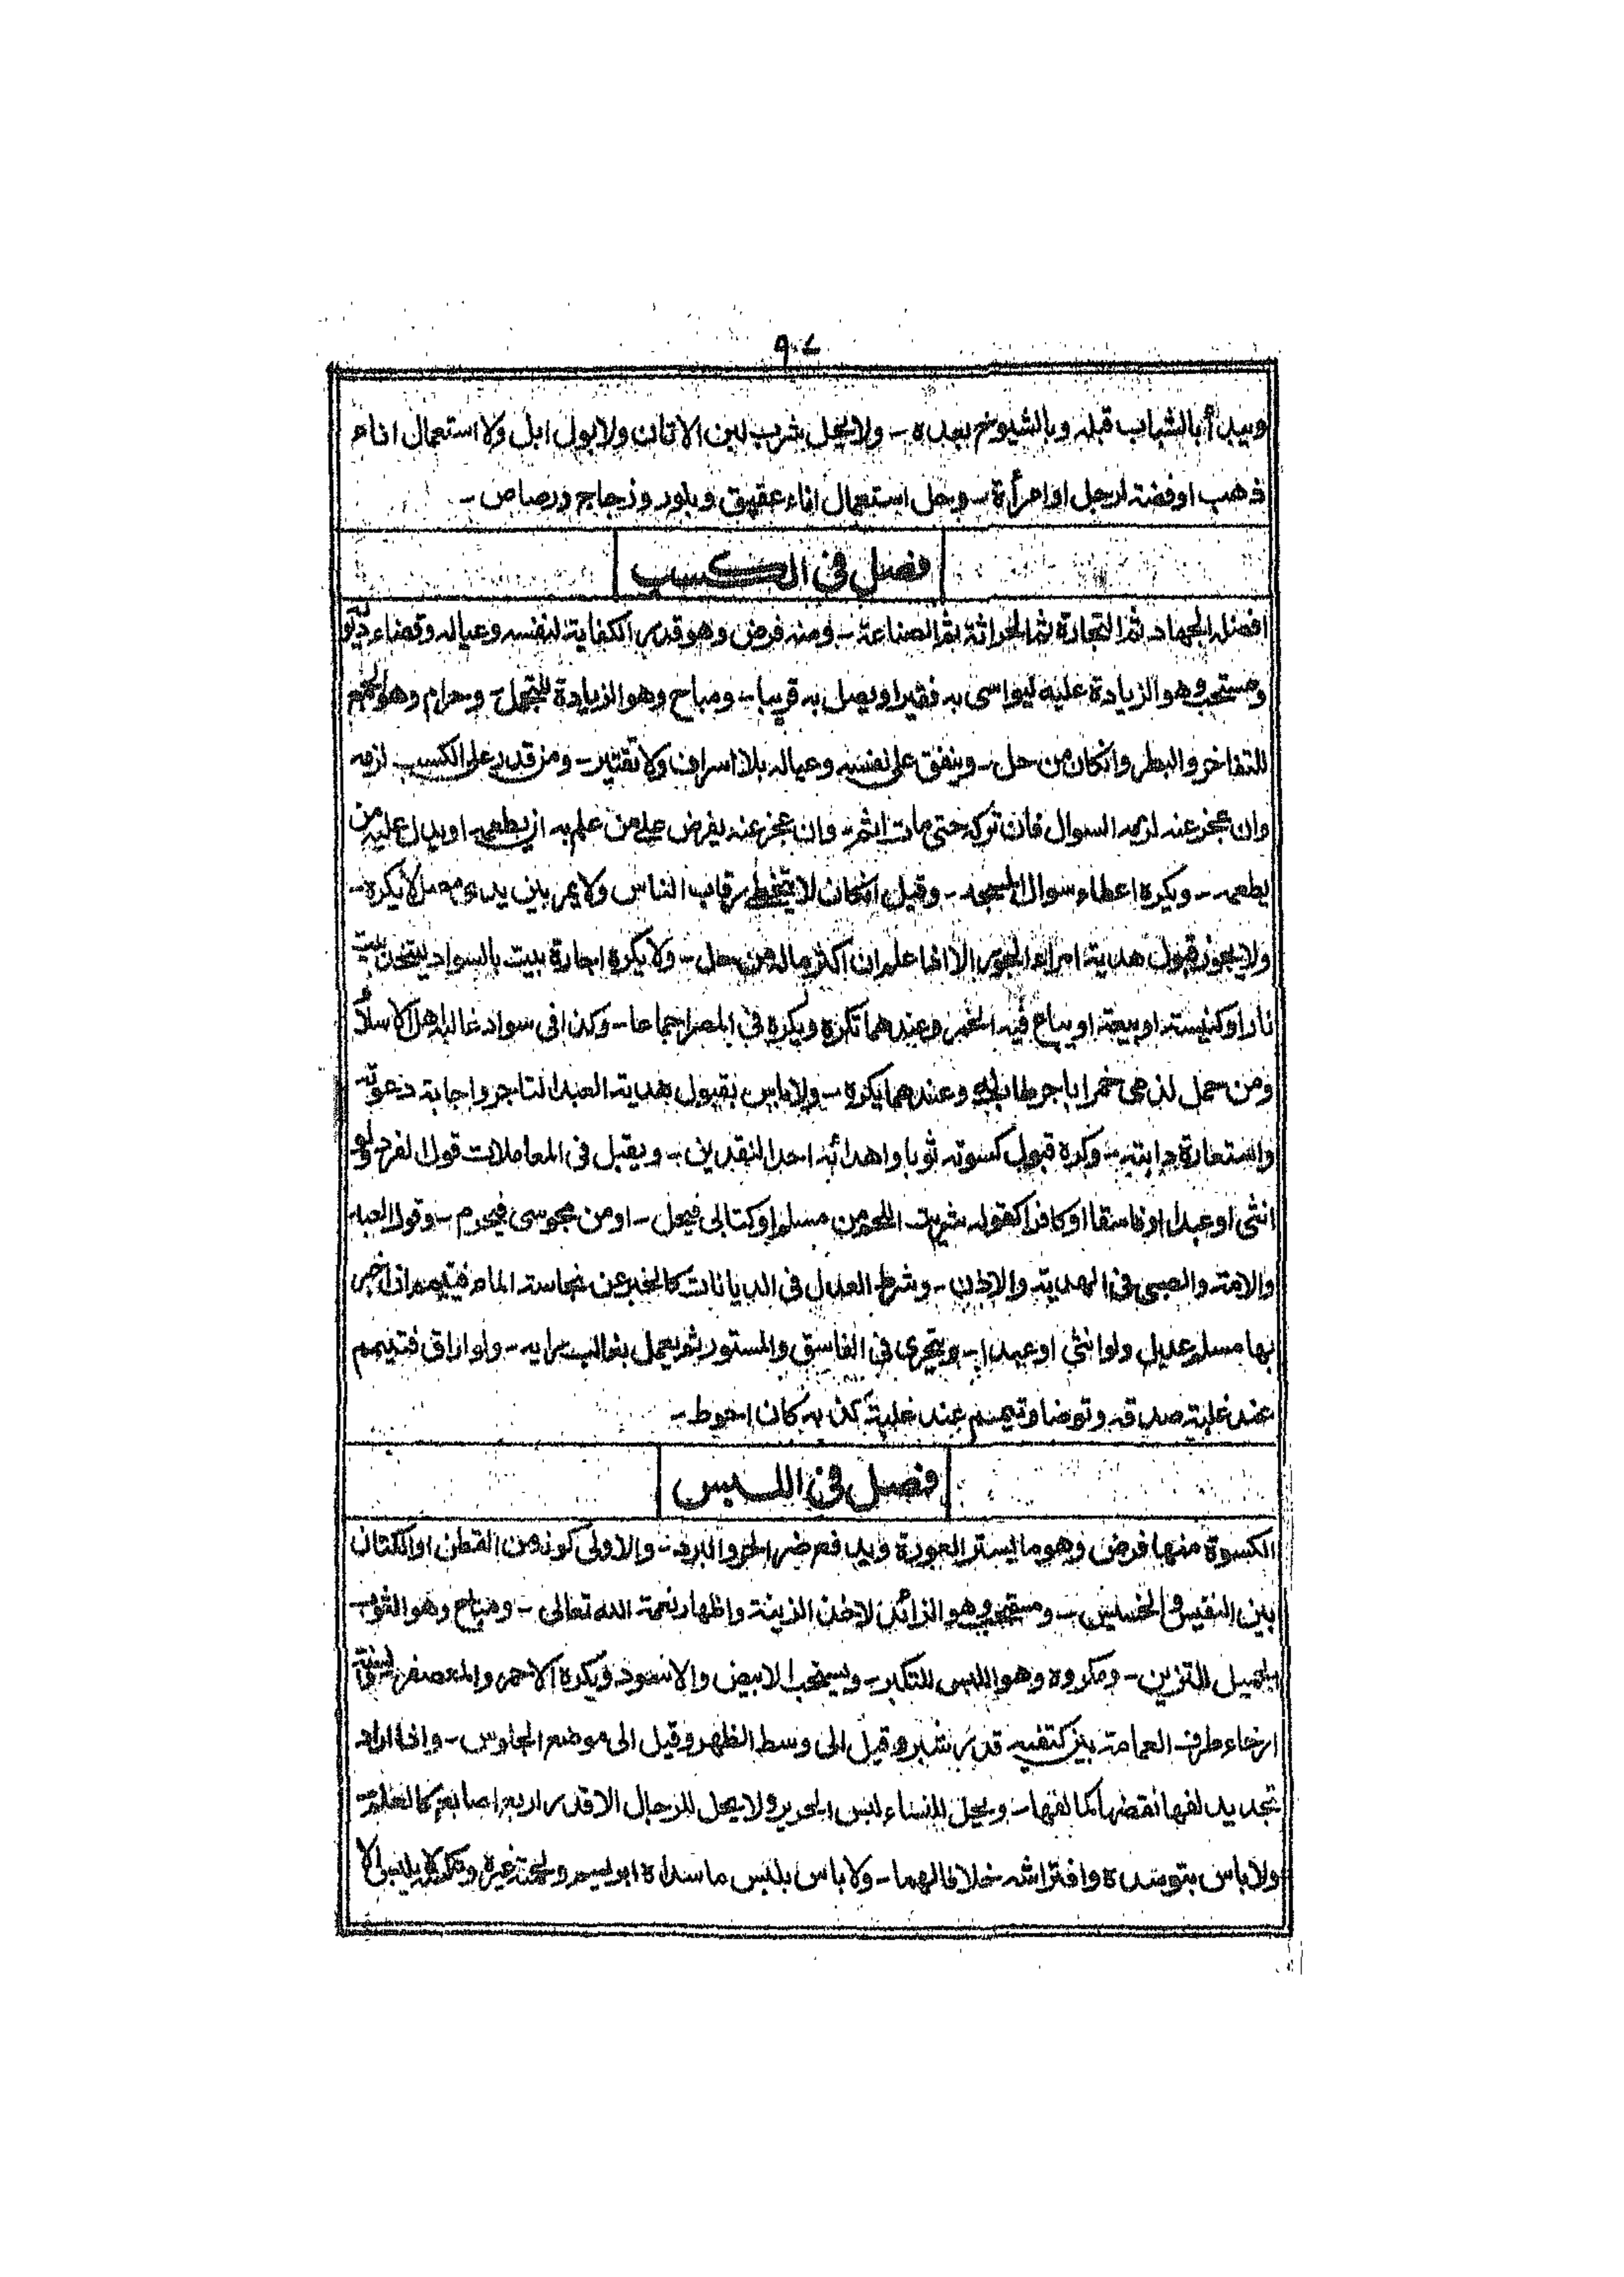 ٩٠٤
ويبدأ بالشباب قبله وبالشيوخ بعده - ولا يحل شرب لبن الاتان ولا بول ابل ولا استعمال اناء
ذهب او فضة لرجل او امرأة - وحل استعمال اناء عقيق وبلور وزجاج ورصاص -
فصل فى الكسب
افضله الجهاد ثم التجارة ثم الحراثة ثم الصناعة - ومنه فرض وهو قدر الكفاية لنفسه وعياله وقضاء ديونه
ومستحب وهو الزيادة عليه ليواسى به فقيرا ويصل به قريبا - ومباح وهو الزيادة للتجمل - وحرام وهو الجمع
للتفاخر والبطر وانكان من حل - وينفق على نفسه وعياله بلا اسراف ولا تقتير - ومن قدر على الكسب لزمه
وان عجز عنه لزمه السوال فان تركه حتى مات اثم - وان عجز عنه يفرض على من علم به ان يطعمه او يدل عليه من
يطعمه - ويكره اعطاء سوال المسجد - وقيل انكان لا يتخطى رقاب الناس ولا يمر بين يدى مصل لا يكره -
ولا يجوز قبول هدية امراء الجور الا اذا علم ان اكثر ماله من حل - ولا يكره اجارة بيت بالسواد ليتخذ بيت
نار او كنيسة او بيعة او يباع فيه الخمر وعندهما تكره ويكره فى المصر اجماعا - وكذا فى سواد غالبه اهل الاسلام
ومن حمل لذمى خمرا باجر طاب له وعندهما يكره - ولا باس بقبول هدية العبد التاجر واجابة دعوته
واستعارة دابته - وكره قبول كسوته ثوبا واهدائه احد النقدين - ويقبل فى المعاملات قول الفرد ولو
انثى او عبدا او فاسقا او كافرا كقوله شريت اللحم من مسلم او كتابى فيحل - او من مجوسى فيحرم - وقول العبد
والامة والصبى فى الهدية والاذن - وشرط العدل فى الديانات كالخبر عن نجاسة الماء فيتيمم ان اخبر
بها مسلم عدل ولو انثى او عبدا - ويتحرى فى الفاسق والمستور ثم يعمل بغالب رايه - ولو اراق فتيمم
عند غلبة صدقه وتوضا وتيمم عند غلبة كذبه كان احوط -
فصل فى اللبس
الكسوة منها فرض وهو ما يستر العورة ويدفع ضرر الحر والبرد - والاولى كونه من القطن او الكتان
بين النفيس والخسيس - ومستحب وهو الزائد لاخذ الزينة واظهار نعمة الله تعالى - ومباح وهو الثوب
الجميل للتزين - ومكروه وهو اللبس للتكبر - ويستحب الابيض والاسود ويكره الاحمر والمعصفر والسنة
ارخاء طرف العمامة بين كتفيه قدر شبر وقيل الى وسط الظهر وقيل الى موضع الجلوس - واذا اراد
تجديد لفها نقضها كما لفها - ويحل للنساء لبس الحرير ولا يحل للرجال الا قدر اربع اصابع كالعلم -
ولا باس بتوسده وافتراشه خلافا لهما - ولا باس بلبس ما سداه ابريسم ولحمته غيره وعكسه لا يلبس الا